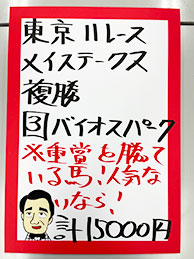 東京11レース
メイステークス
複勝
3バイオスパーク
※重賞を勝て
いる馬!人気な
いなら!
計15000円